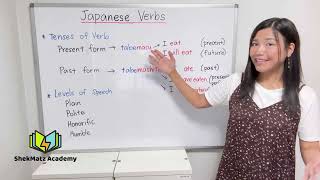 Japanese Verbs
* Tenses of Verb
Present form → tabemasu → I eat. (present)
I will eat (future)
Past form → tabemashita ate (past)
eaten (present
* Levels of Speech
Plain
Polite
Honorific
Humble
ShekMatz Academy